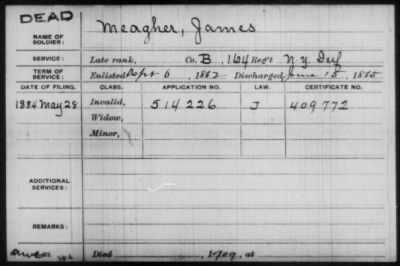 DEAD
NAME OF SOLDIER: Meagher, James
SERVICE: Late rank, Co. B, 164 Regt. N.Y. Inf
TERM OF SERVICE: Enlisted Sept 6, 1862 Discharged June 15, 1865
DATE OF FILING. CLASS. APPLICATION NO. LAW. CERTIFICATE NO.
1884 May 28 Invalid, 514226 J 409772
Widow,
Minor,
ADDITIONAL SERVICES:
REMARKS:
Died , 190 , at